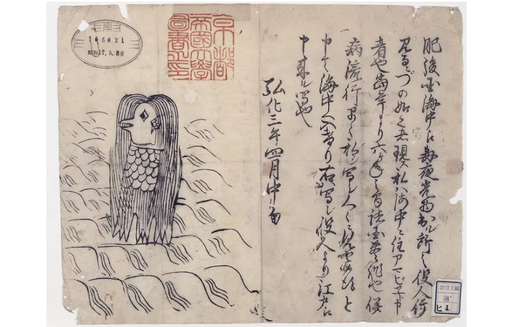 肥後国海中え毎夜光物出ル所之役人行
見るニづの如之者現ス私ハ海中ニ住アマビヱト申
者也當年より六ケ年之間諸国豊作也併
病流行早々私シ写シ人々ニ見セ候得と
申て海中へ入けり右写シ役人より江戸え
申来ル写也
弘化三年四月中旬
京都
帝國大學
圖書之印